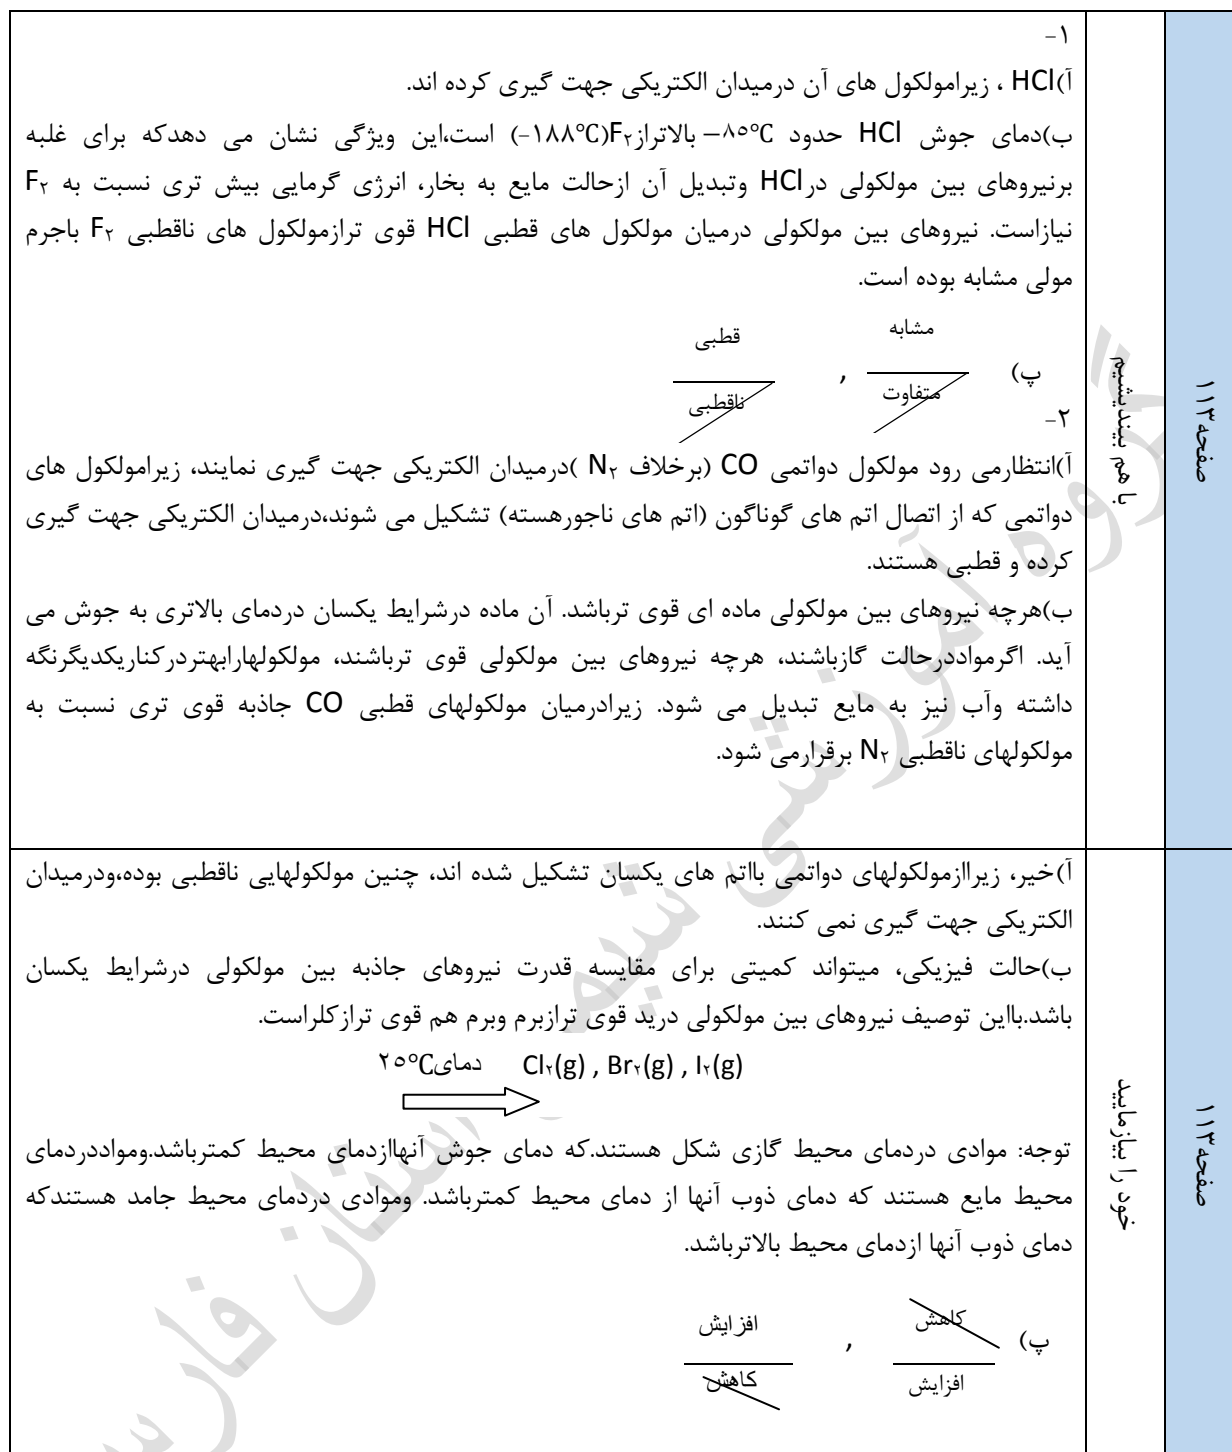 صفحه ۱۱۳
با هم بیندیشیم
۱-
آ)HCl ، زیرامولکول های آن درمیدان الکتریکی جهت گیری کرده اند.
ب)دمای جوش HCl حدود ۸۵°C– بالاتراز F۲(-۱۸۸°C) است،این ویژگی نشان می دهدکه برای غلبه
برنیروهای بین مولکولی درHCl وتبدیل آن ازحالت مایع به بخار، انرژی گرمایی بیش تری نسبت به F۲
نیازاست. نیروهای بین مولکولی درمیان مولکول های قطبی HCl قوی ترازمولکول های ناقطبی F۲ باجرم
مولی مشابه بوده است.
پ) مشابه / متفاوت , قطبی / ناقطبی
۲-
آ)انتظارمی رود مولکول دواتمی CO (برخلاف N۲ )درمیدان الکتریکی جهت گیری نمایند، زیرامولکول های
دواتمی که از اتصال اتم های گوناگون (اتم های ناجورهسته) تشکیل می شوند،درمیدان الکتریکی جهت گیری
کرده و قطبی هستند.
ب)هرچه نیروهای بین مولکولی ماده ای قوی ترباشد. آن ماده درشرایط یکسان دردمای بالاتری به جوش می
آید. اگرموادد‌رحالت گازباشند، هرچه نیروهای بین مولکولی قوی ترباشند، مولکولهارابهتردرکناریکدیگرنگه
داشته وآب نیز به مایع تبدیل می شود. زیرادرمیان مولکولهای قطبی CO جاذبه قوی تری نسبت به
مولکولهای ناقطبی N۲ برقرارمی شود.
صفحه ۱۱۳
خود را بیازمایید
آ)خیر، زیراازمولکولهای دواتمی بااتم های یکسان تشکیل شده اند، چنین مولکولهایی ناقطبی بوده،ودرمیدان
الکتریکی جهت گیری نمی کنند.
ب)حالت فیزیکی، میتواند کمیتی برای مقایسه قدرت نیروهای جاذبه بین مولکولی درشرایط یکسان
باشد.بااین توصیف نیروهای بین مولکولی درید قوی ترازبرم وبرم هم قوی ترازکلراست.
دمای۲۵°C Cl۲(g) , Br۲(g) , I۲(g)
توجه: موادی دردمای محیط گازی شکل هستند.که دمای جوش آنهاازدمای محیط کمترباشد.وموادددردمای
محیط مایع هستند که دمای ذوب آنها از دمای محیط کمترباشد. وموادی دردمای محیط جامد هستندکه
دمای ذوب آنها ازدمای محیط بالاترباشد.
پ) کاهش / افزایش , افزایش / کاهش